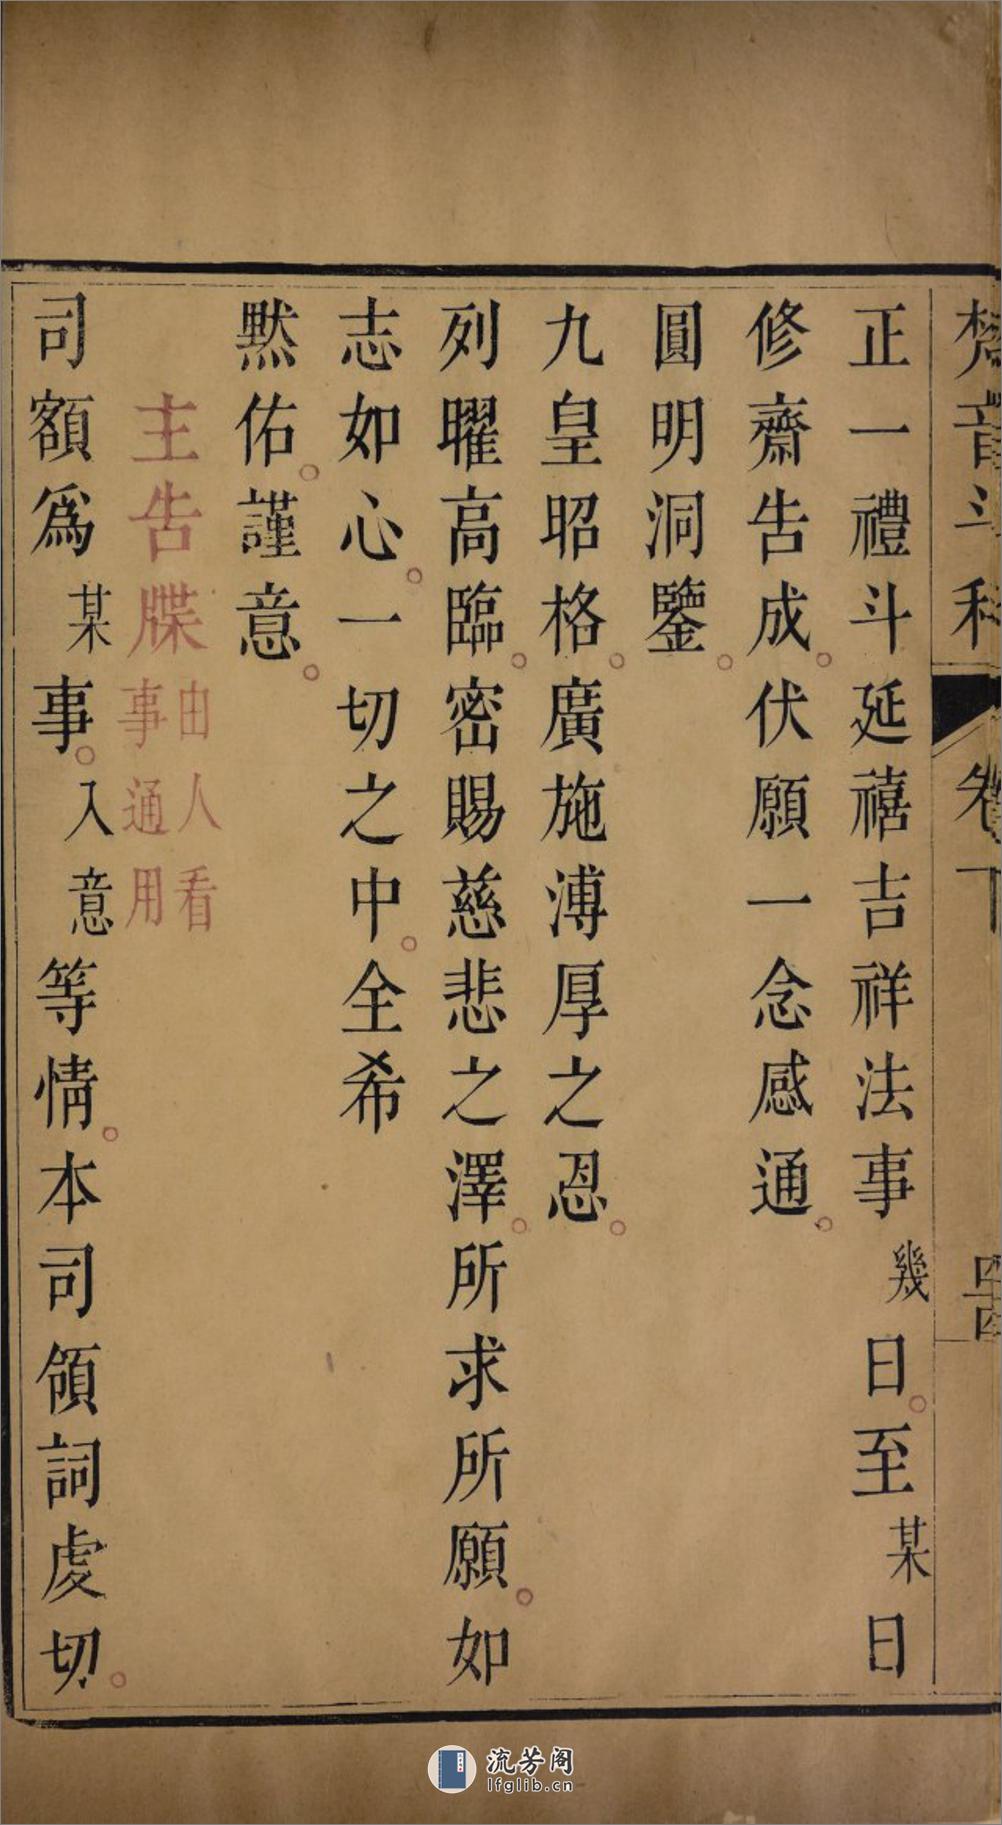 梵音斗科 卷下
正一禮斗延禧吉祥法事幾日。至某日
修齋告成。伏願一念感通。
圓明洞鑒。
九皇昭格。廣施溥厚之恩。
列曜高臨。密賜慈悲之澤。所求所願。如
志如心。一切之中。全希
默佑。謹意。
主告牒由人看事通用
司額為某事。入意等情。本司領詞虔切。
流芳阁
lfglib.cn